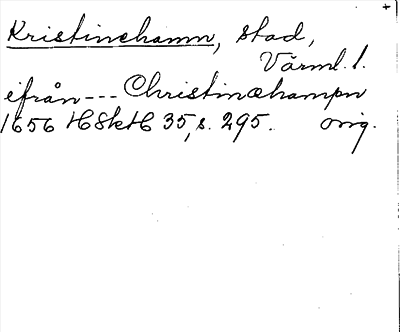 Kristinehamn, stad,
Värml. l.
ifrån --- Christinæhampn
1656 HSkH 35, s. 295. orig.